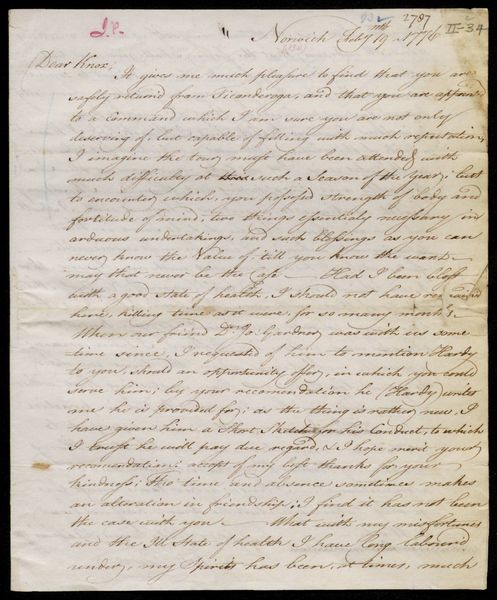 J.P.
2787
II-34
Norwich Feb'y 19th 1776
Dear Knox,
It gives me much pleasure to find that you are
safely return'd from Ticonderoga, and that you are appointed
to a command which I am sure you are not only
deserving of, but capable of filling with much reputation,
I imagine the tour must have been attended with
much difficulty at such a Season of the Year; but
to encounter which, you possess'd strength of body and
fortitude of mind, two things essentialy necessary in
arduous undertakings, and such blessings as you can
never know the Value of 'till you know the want
may that never be the Case — Had I been blest
with a good state of health, I should not have remained
here, killing time as it were, for so many months,
When our friend Dr. Gardner was with us some
time since, I requested of him to mention Hardy
to you, should an opportunity offer, in which you could
serve him; by your recomendation he (Hardy) writes
me he is provided for; as the thing is rather new, I
have given him a Short Sketch for his Conduct, to which
I trust he will pay due regard, & I hope merit your
recomendation; accept of my best thanks for your
kindness; the time and absence sometimes makes
an alteration in friendship; I find it has not been
the case with you — What with my misfortunes
and the Ill State of health I have long labourd
under, my Spirits has been, at times, much